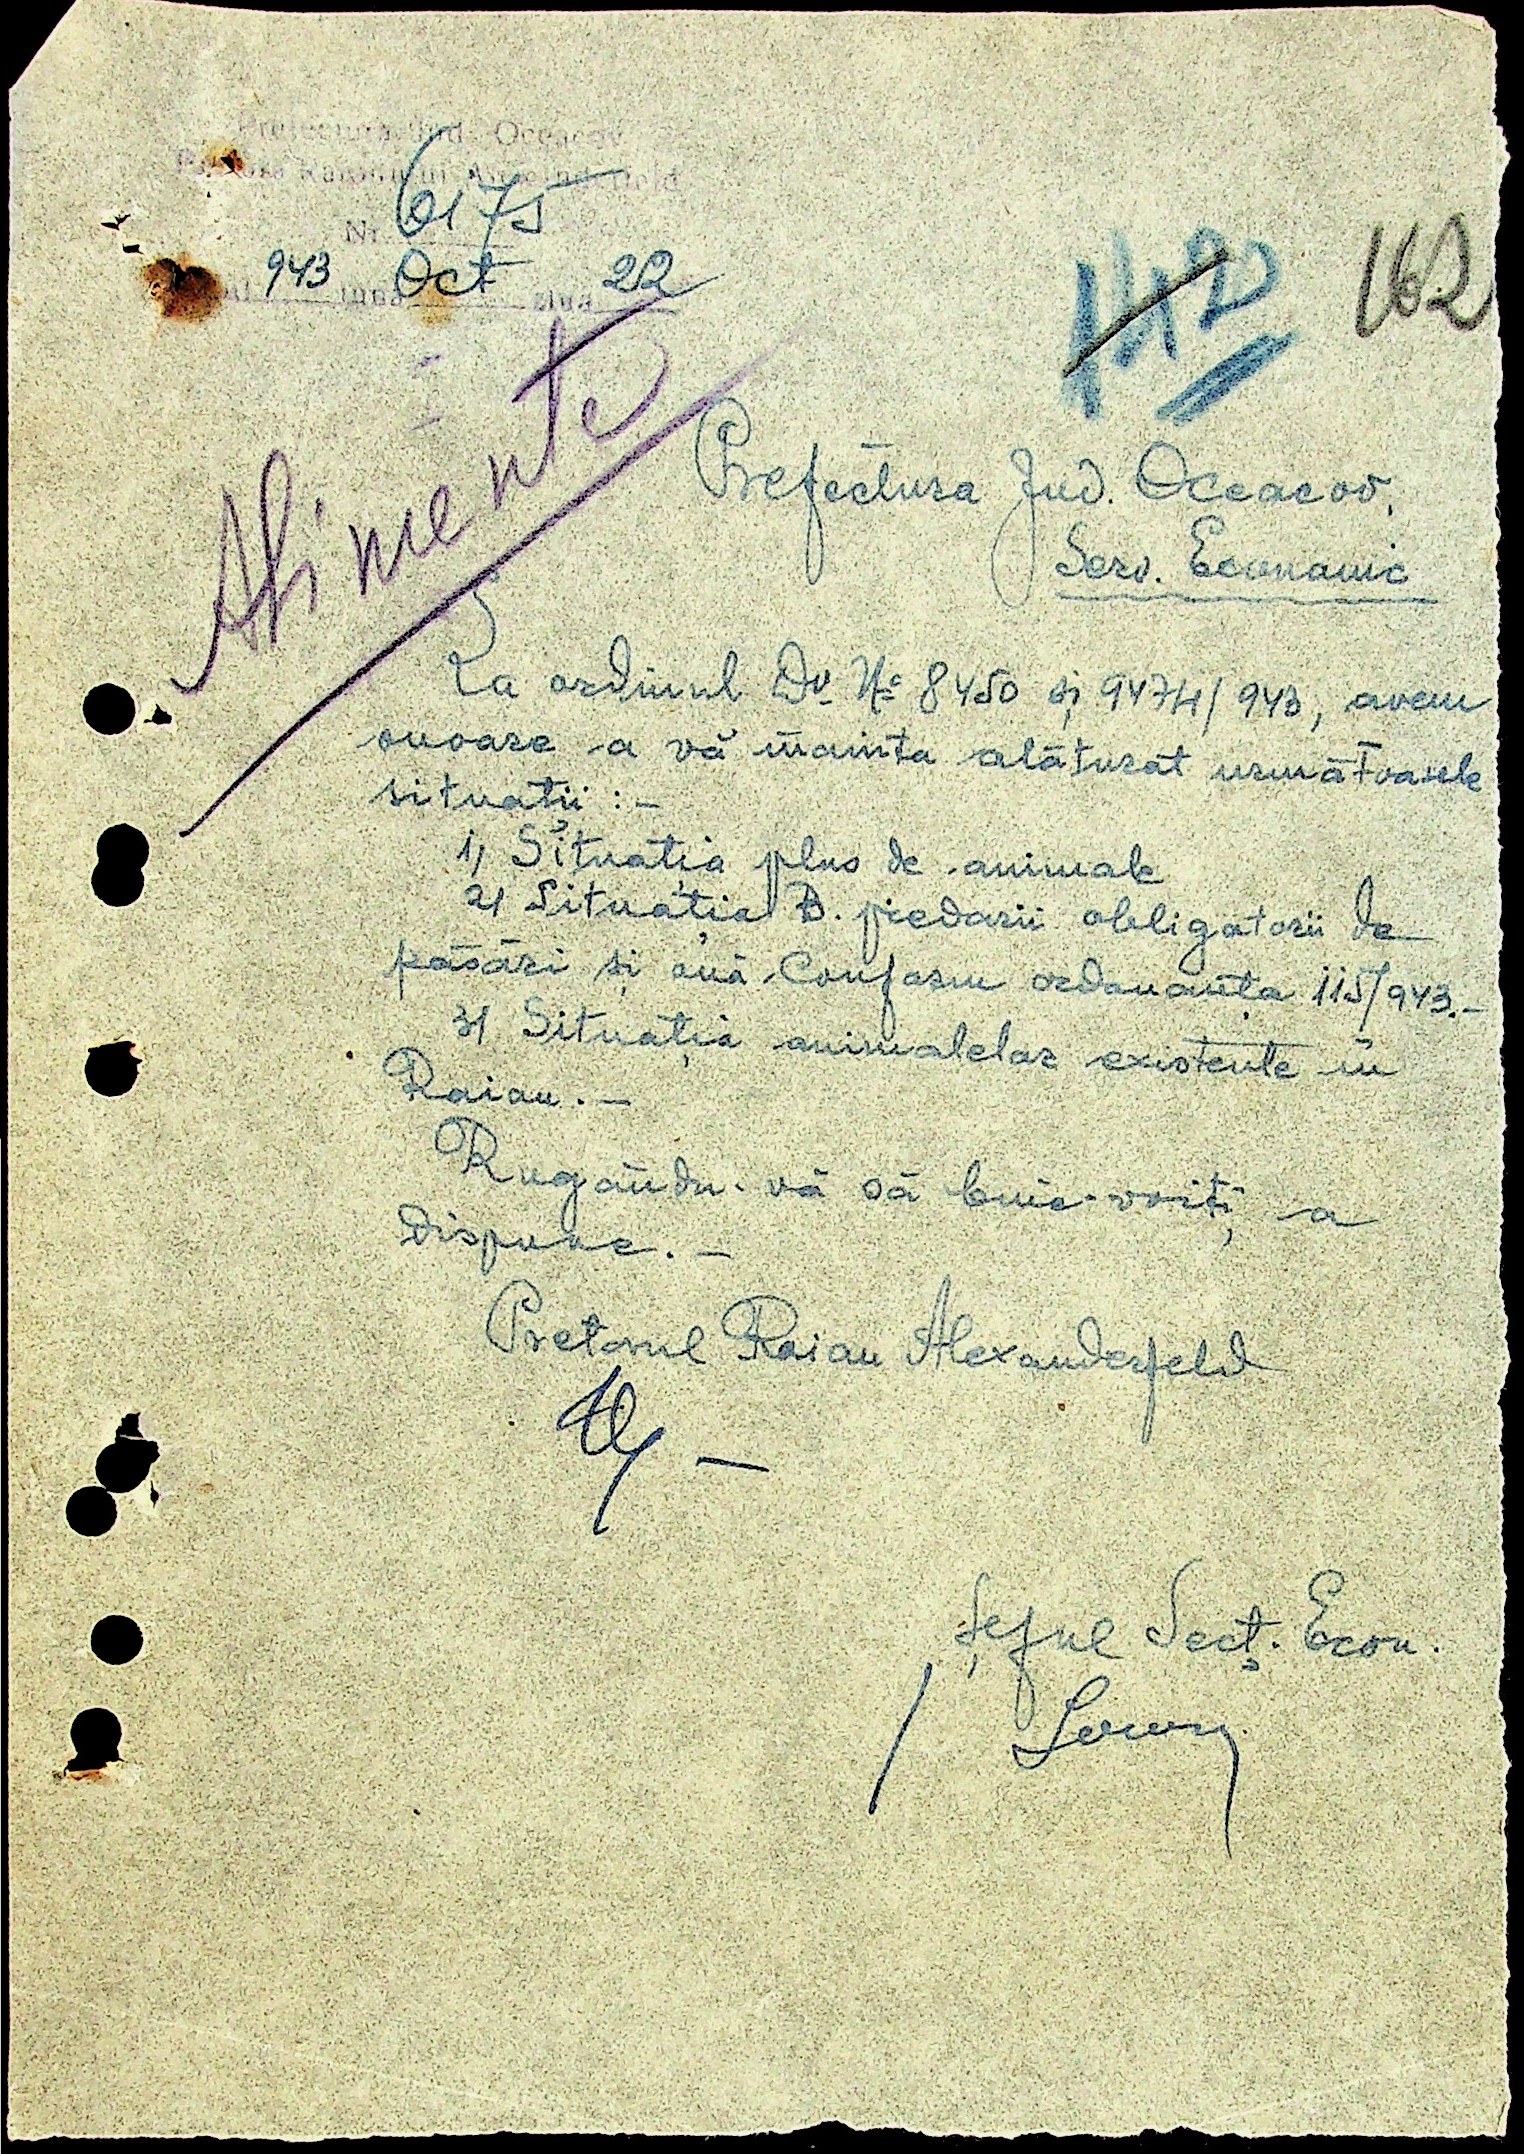 Prefectura Jud. Oceacov
Pretura Raionului Alexanderfeld
Nr. 6175
943 luna Oct ziua 22
142
162
Alimente
Prefectura Jud. Oceacov,
Serv. Economic
La ordinul Dv. No 8450 și 9474/943, avem
onoare a vă înainta alăturat următoarele
situatii :-
1, Situația plus de animale
2/ Situația B. predarii obligatorii de
păsări și ouă. Conform ordonanța 115/943.-
3/ Situația animalelor existente în
Raion. -
Rugându-vă să bine-voiți a
dispune. -
Pretorul Raion Alexanderfeld
Șeful Secț. Econ.